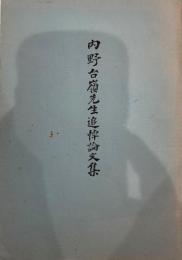 内野台嶺先生追悼論文集